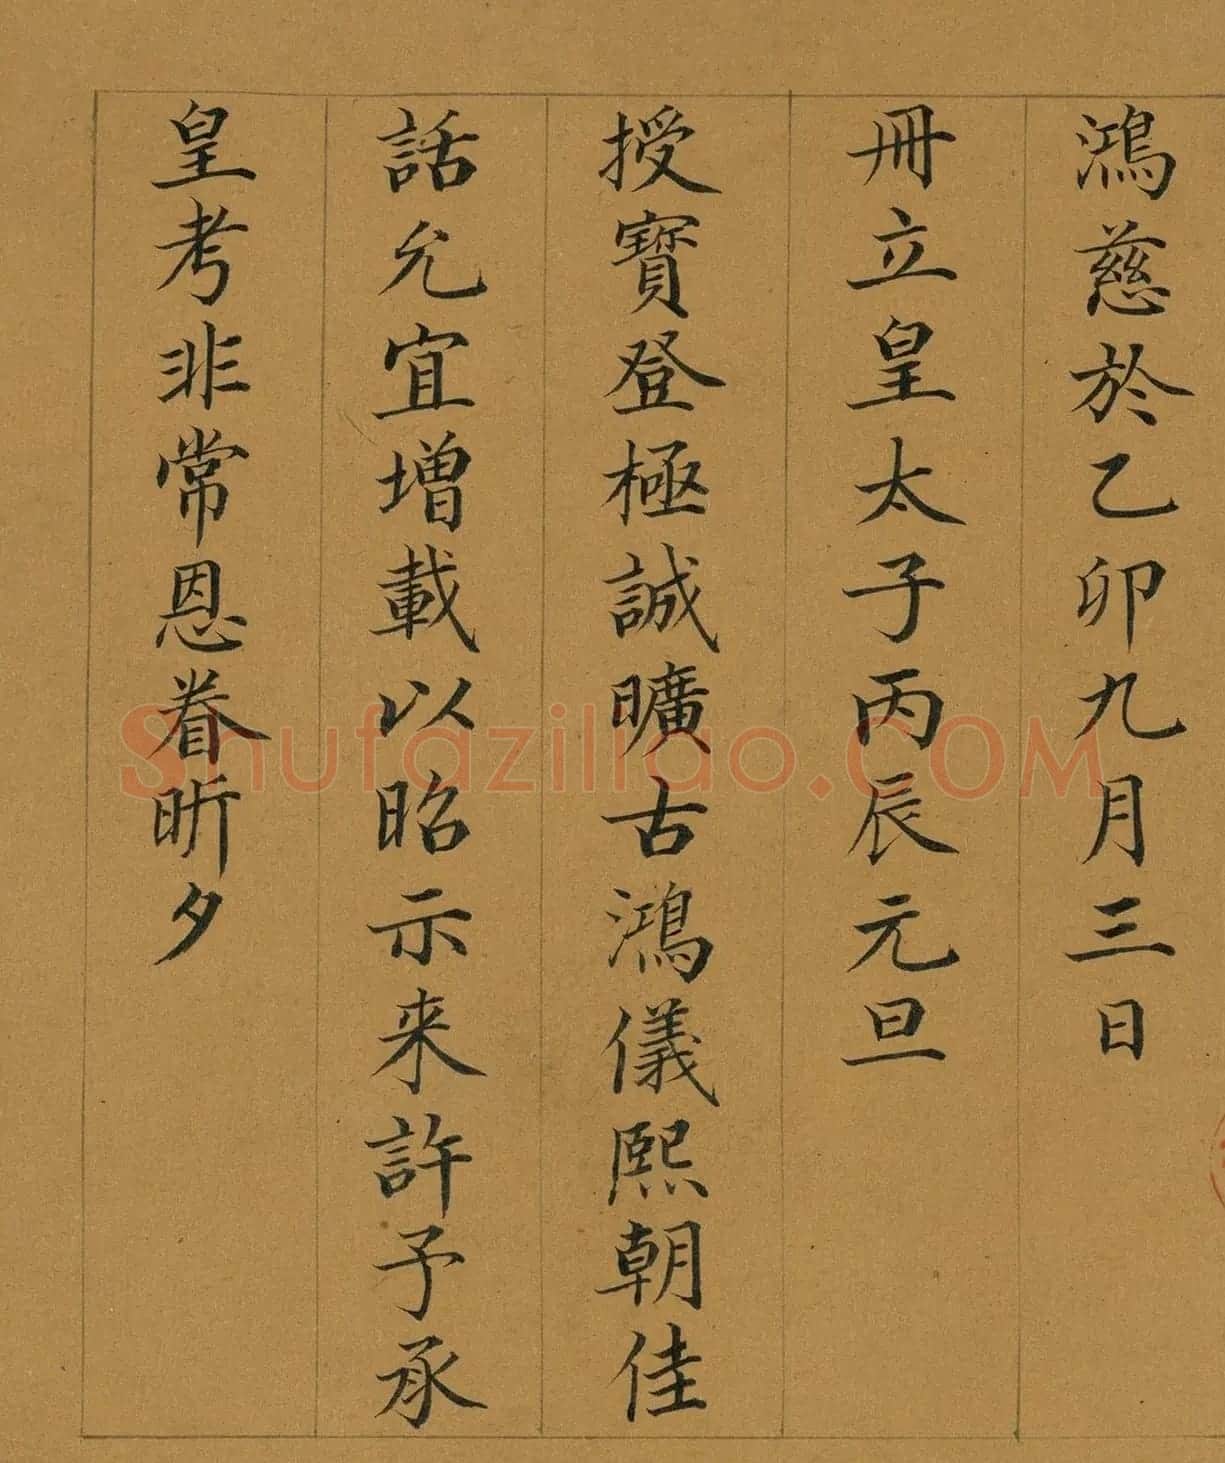 鴻慈於乙卯九月三日
冊立皇太子丙辰元旦
授寶登極誠曠古鴻儀熙朝佳
話允宜增載以昭示来許予承
皇考非常恩眷昕夕
Shufaziliao.COM